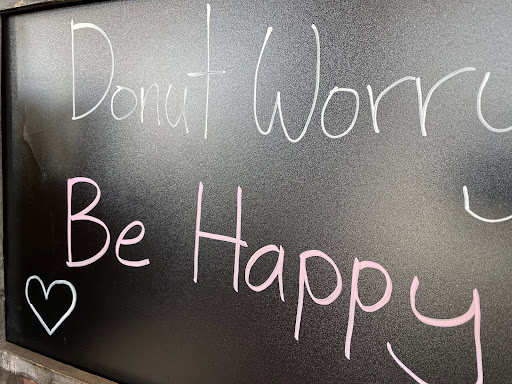 Donut Worry
Be Happy